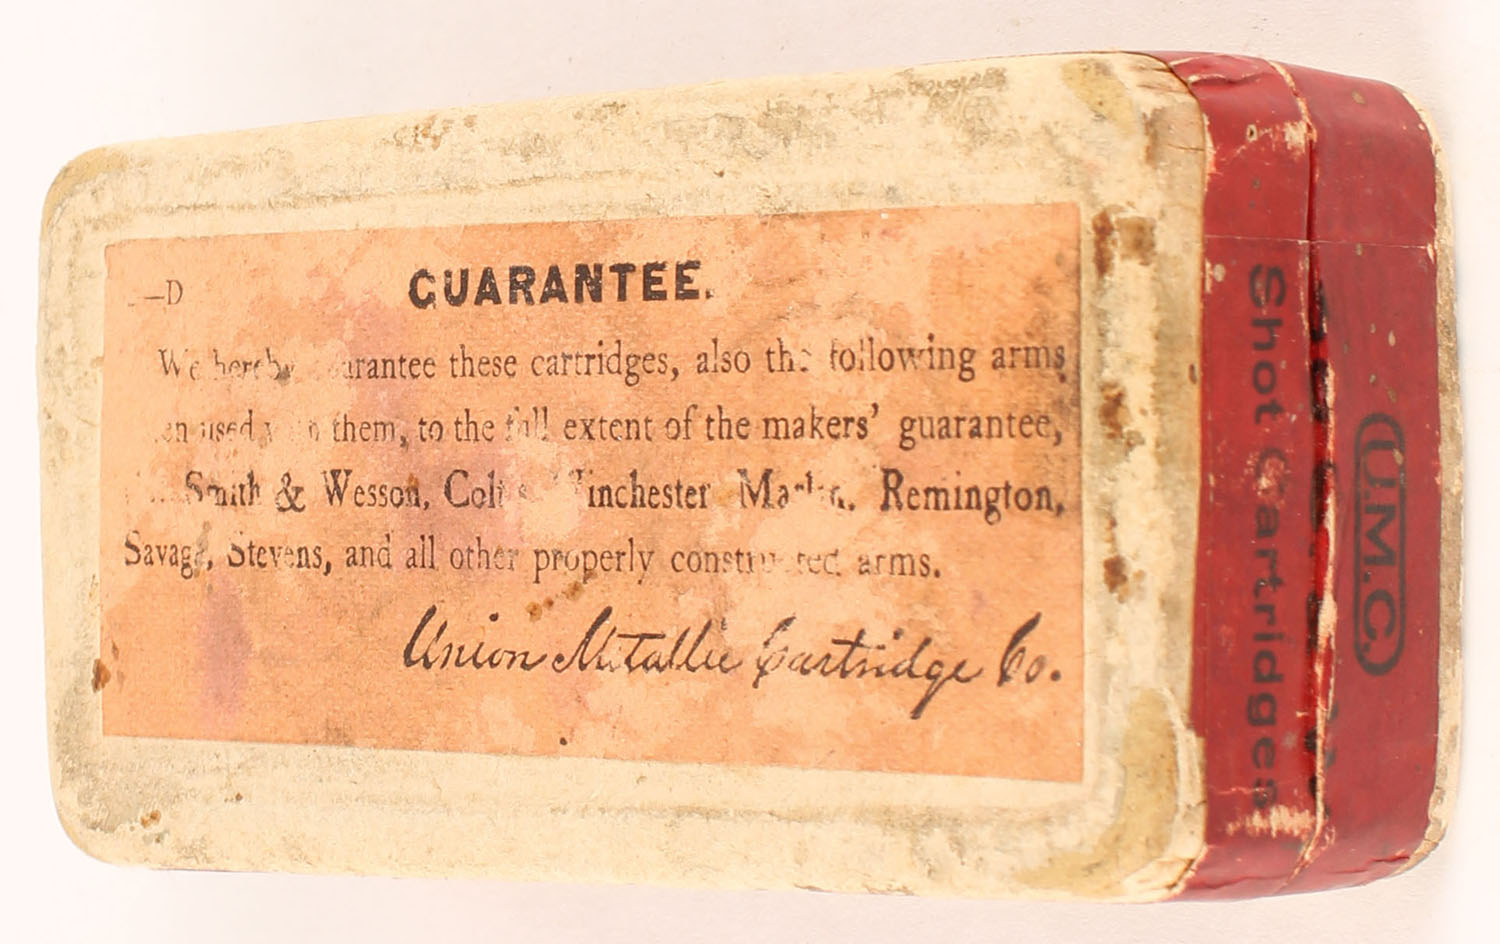 —D
GUARANTEE.
We hereby guarantee these cartridges, also the following arms
used with them, to the full extent of the makers' guarantee,
Smith & Wesson, Colt's Winchester Marlin. Remington,
Savage, Stevens, and all other properly constructed arms.
Union Metallic Cartridge Co.
U.M.C.
Shot Cartridges